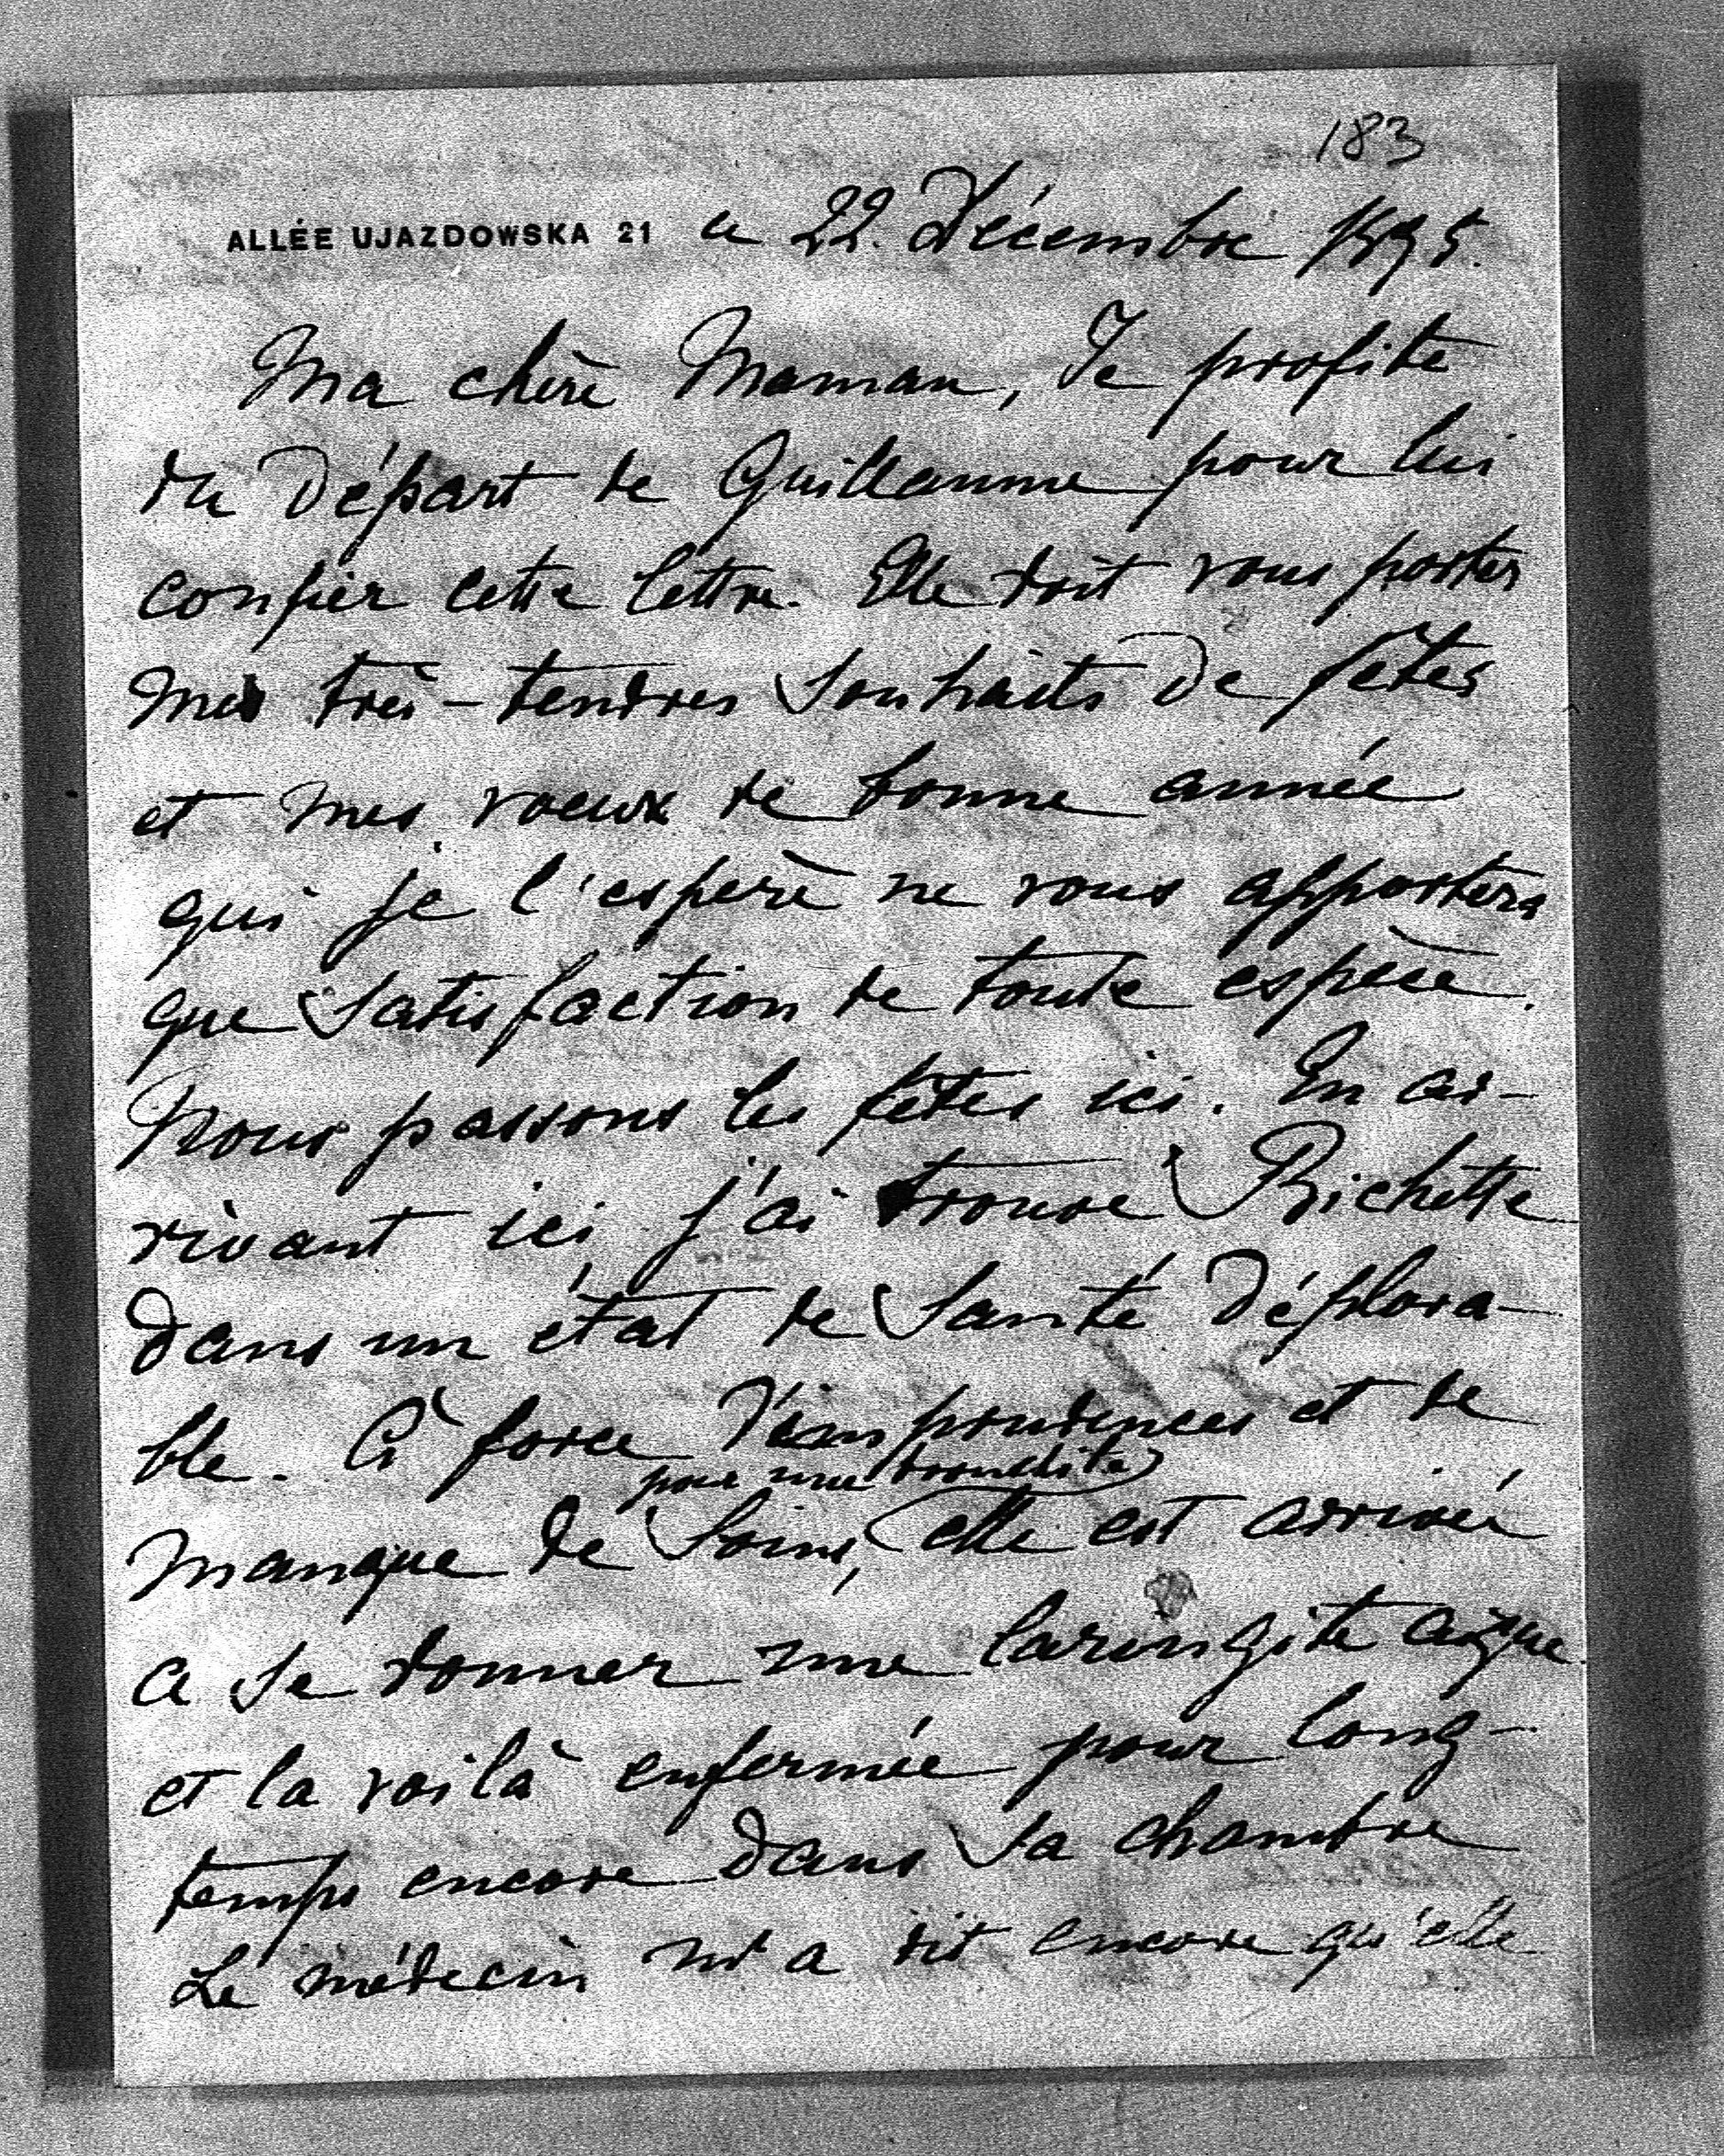 183
ALLÉE UJAZDOWSKA 21 a 22. Décembre 1895.
Ma chère Maman, Je profite
du départ de Guillaume pour lui
confier cette lettre. Elle doit vous porter
mes très-tendres souhaits de fêtes
et mes voeux de bonne année
qui je l'espère ne vous apportera
que satisfaction de toute espèce.
Nous passons les fêtes ici. En ar-
rivant ici j'ai trouvé Bichette
dans un état de santé déplora-
ble. À force d'imprudences et de
pour une bronchite
manque de soins, elle est arrivée
a se donner une laringite aigue
et la voilà enfermée pour long-
temps encore dans sa chambre
Le médecin m'a dit encore qu'elle